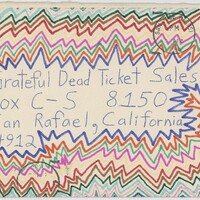 grateful Dead Ticket Sales
ox C-S 8150
an Rafael, California
4912